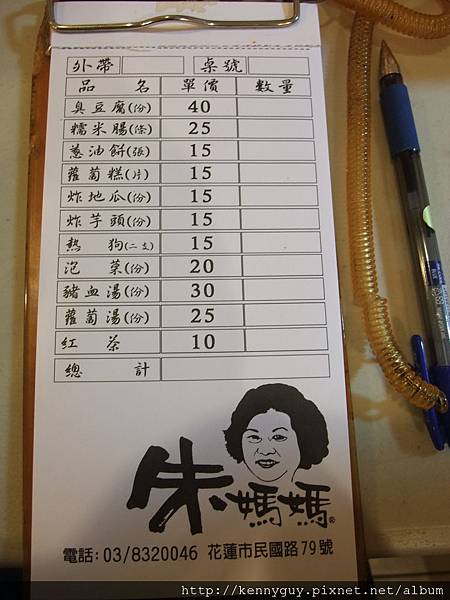 外帶 桌號
品名 單價 數量
臭豆腐(份) 40
糯米腸(條) 25
蔥油餅(張) 15
蘿蔔糕(片) 15
炸地瓜(份) 15
炸芋頭(份) 15
熱狗(二支) 15
泡菜(份) 20
豬血湯(份) 30
蘿蔔湯(份) 25
紅茶 10
總計
朱媽媽®
電話: 03/8320046 花蓮市民國路79號
http://kennyguy.pixnet.net/album